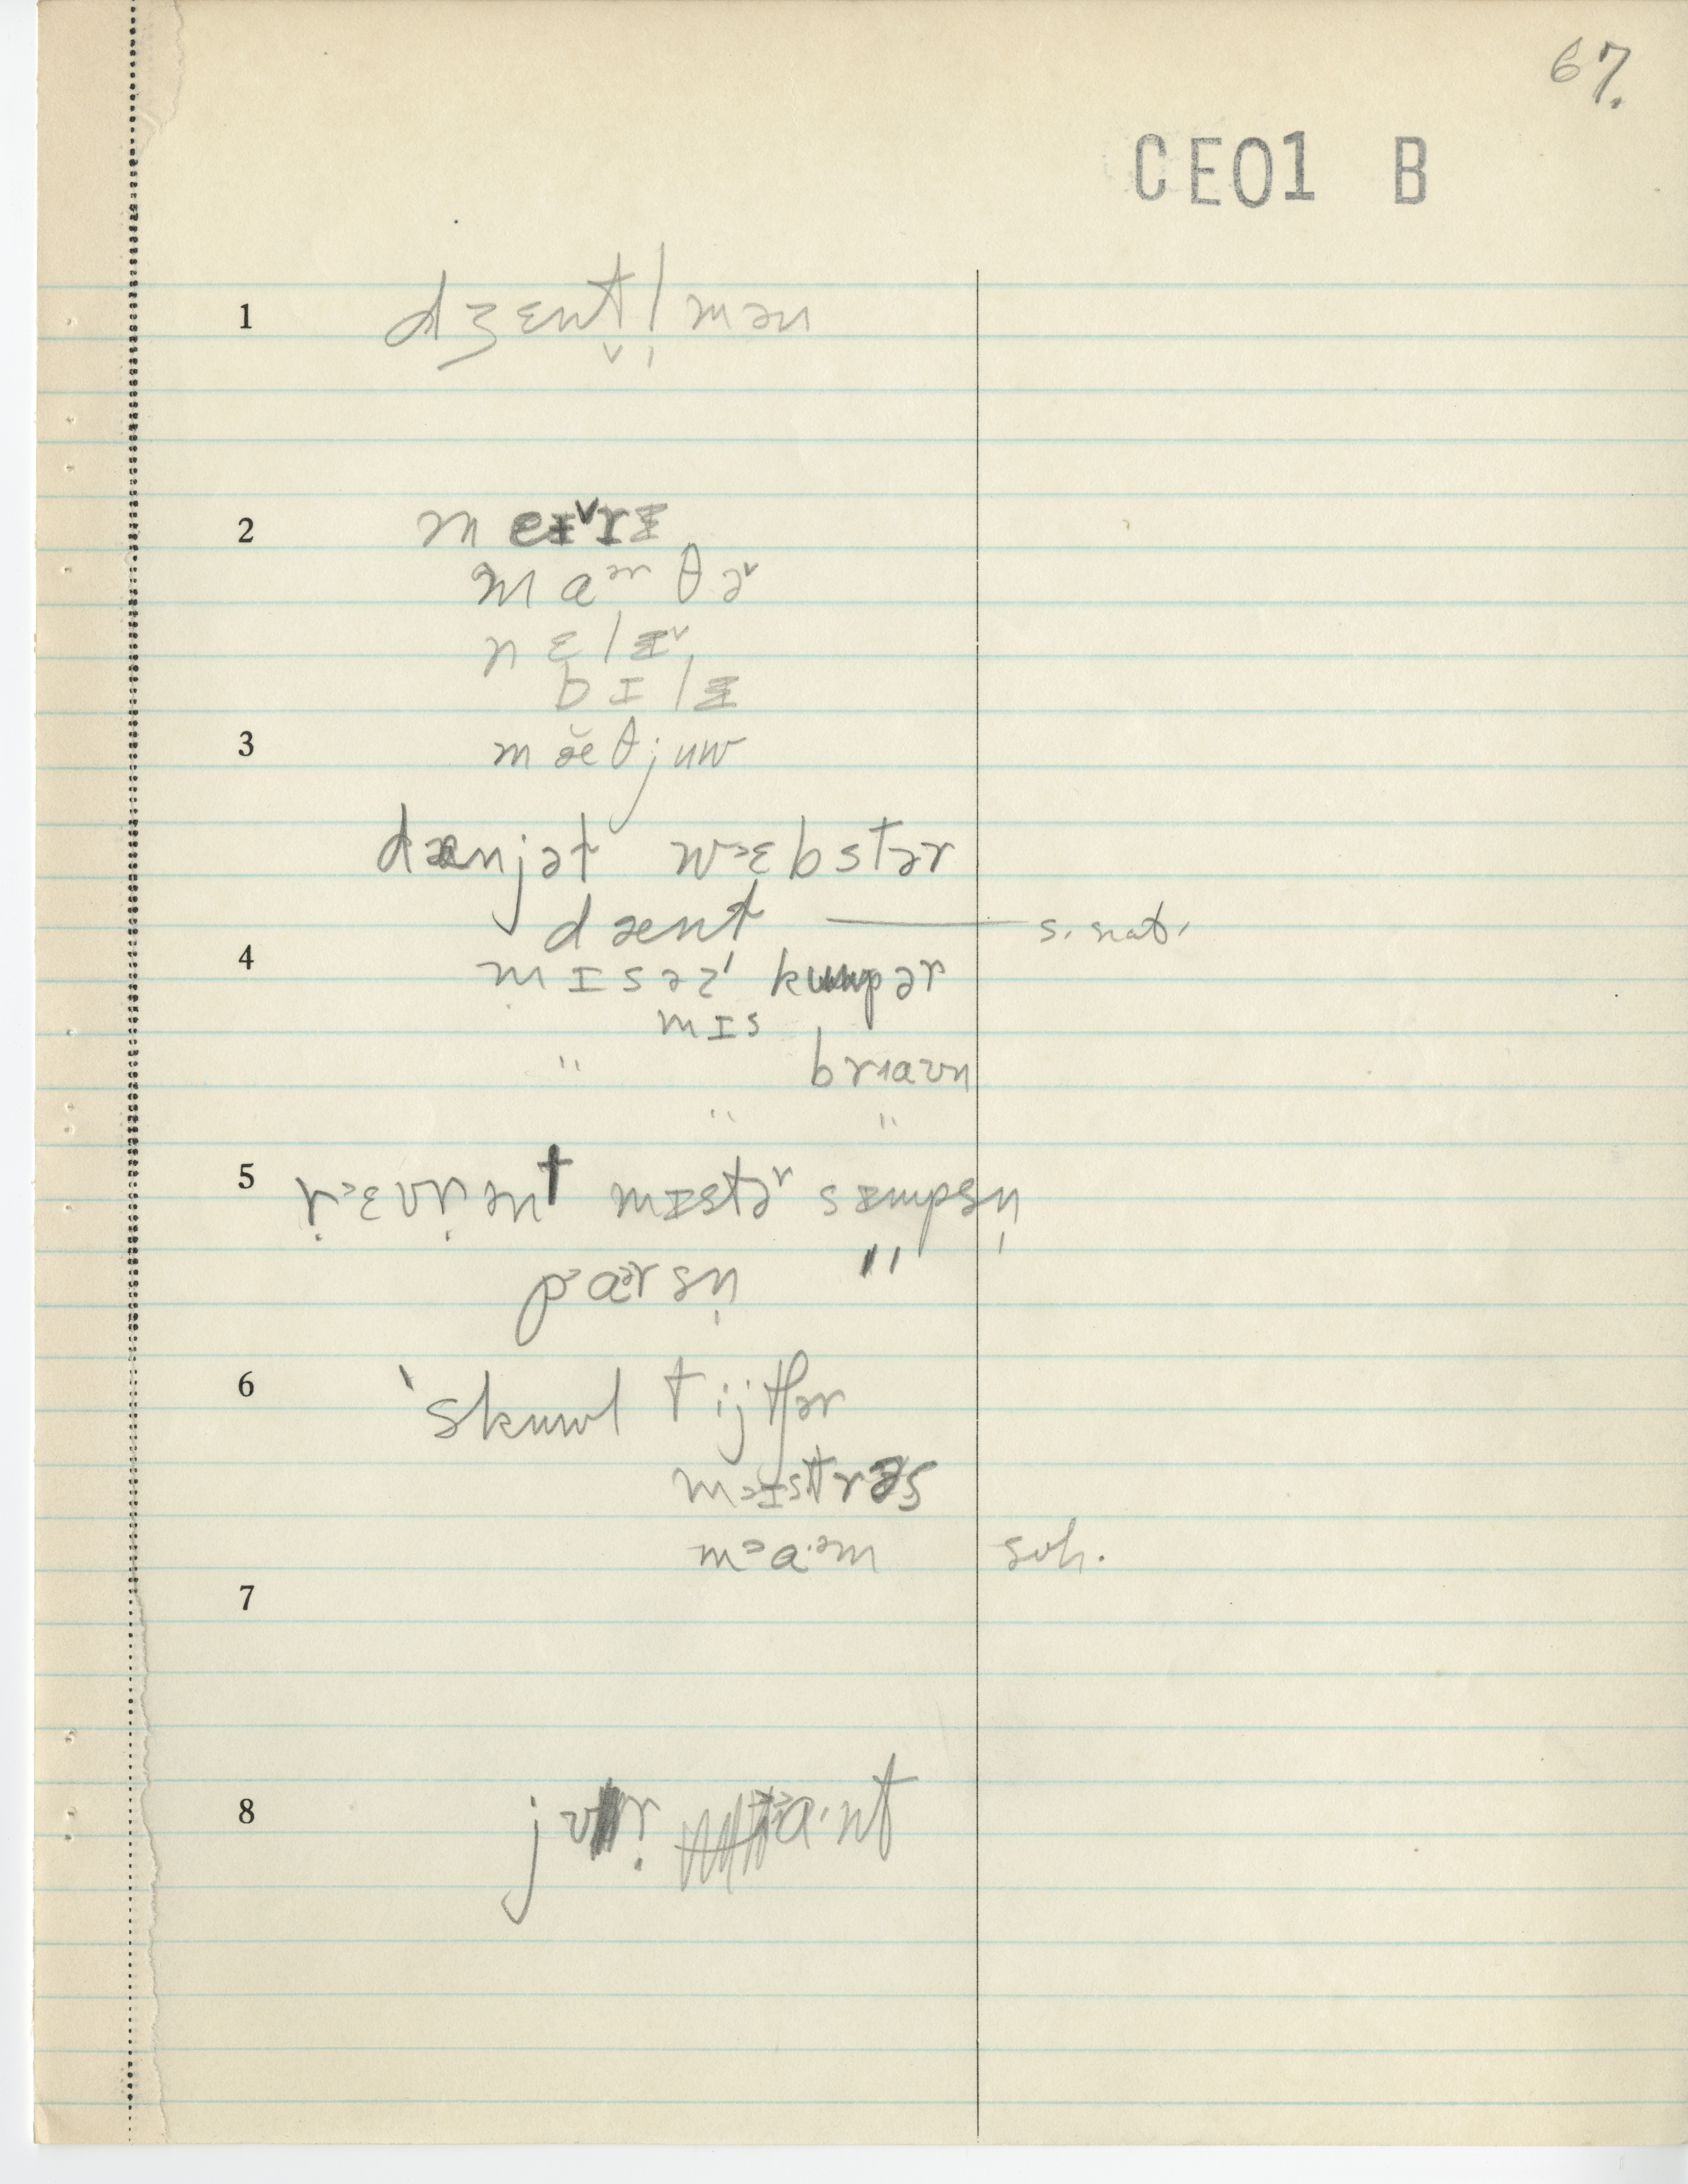 67.
CE01 B
1 dʒɛnt̬l̩mən
2 meɪ˅rɪ
maᵊʳθə˅
nɛlɪ˅
bɪlɪ
3 mæ̆θjuw
dænjəɫ wᵊɛbstər
dænt — s. nat.
4 mɪsəz kuwpər
mɪs
" braʊn
" "
5 ṛᵊɛvṛənt mɪstəʳ sɪmpsn̩
pᵊaᵊrsn̩ "
6 ˈskuwl tijtʃər
mᵊɪstrəs
mᵊa·ᵊm sch.
7
8 jʊṛ a·nt